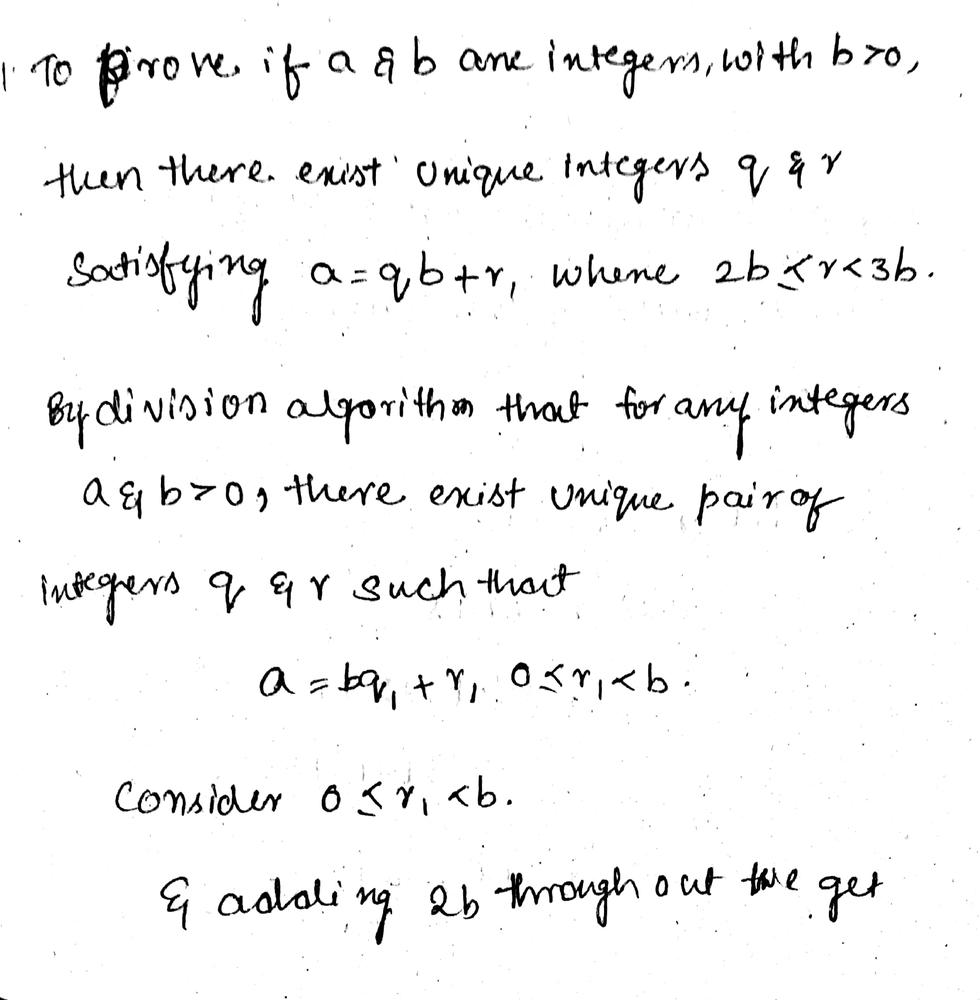 1. To prove if a & b are integers, with b>0,
then there exist unique integers q & r
Satisfying a = qb + r, where 2b ≤ r < 3b.
By division algorithm that for any integers
a & b > 0, there exist unique pair of
integers q & r such that
a = bq₁ + r₁ 0 ≤ r₁ < b.
Consider 0 ≤ r₁ < b.
& adding 2b through out we get